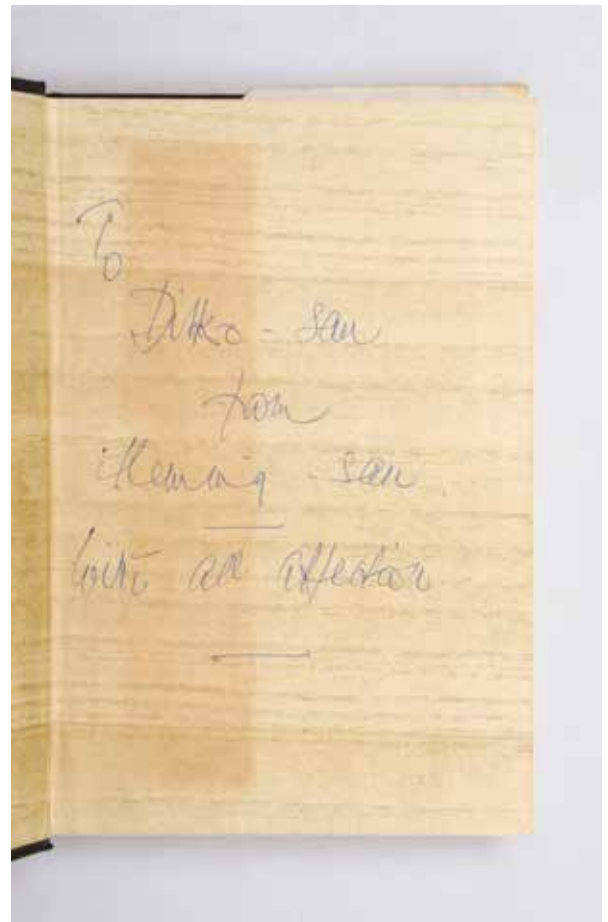 To
Ditko-san
from
Fleming-san
with all affection